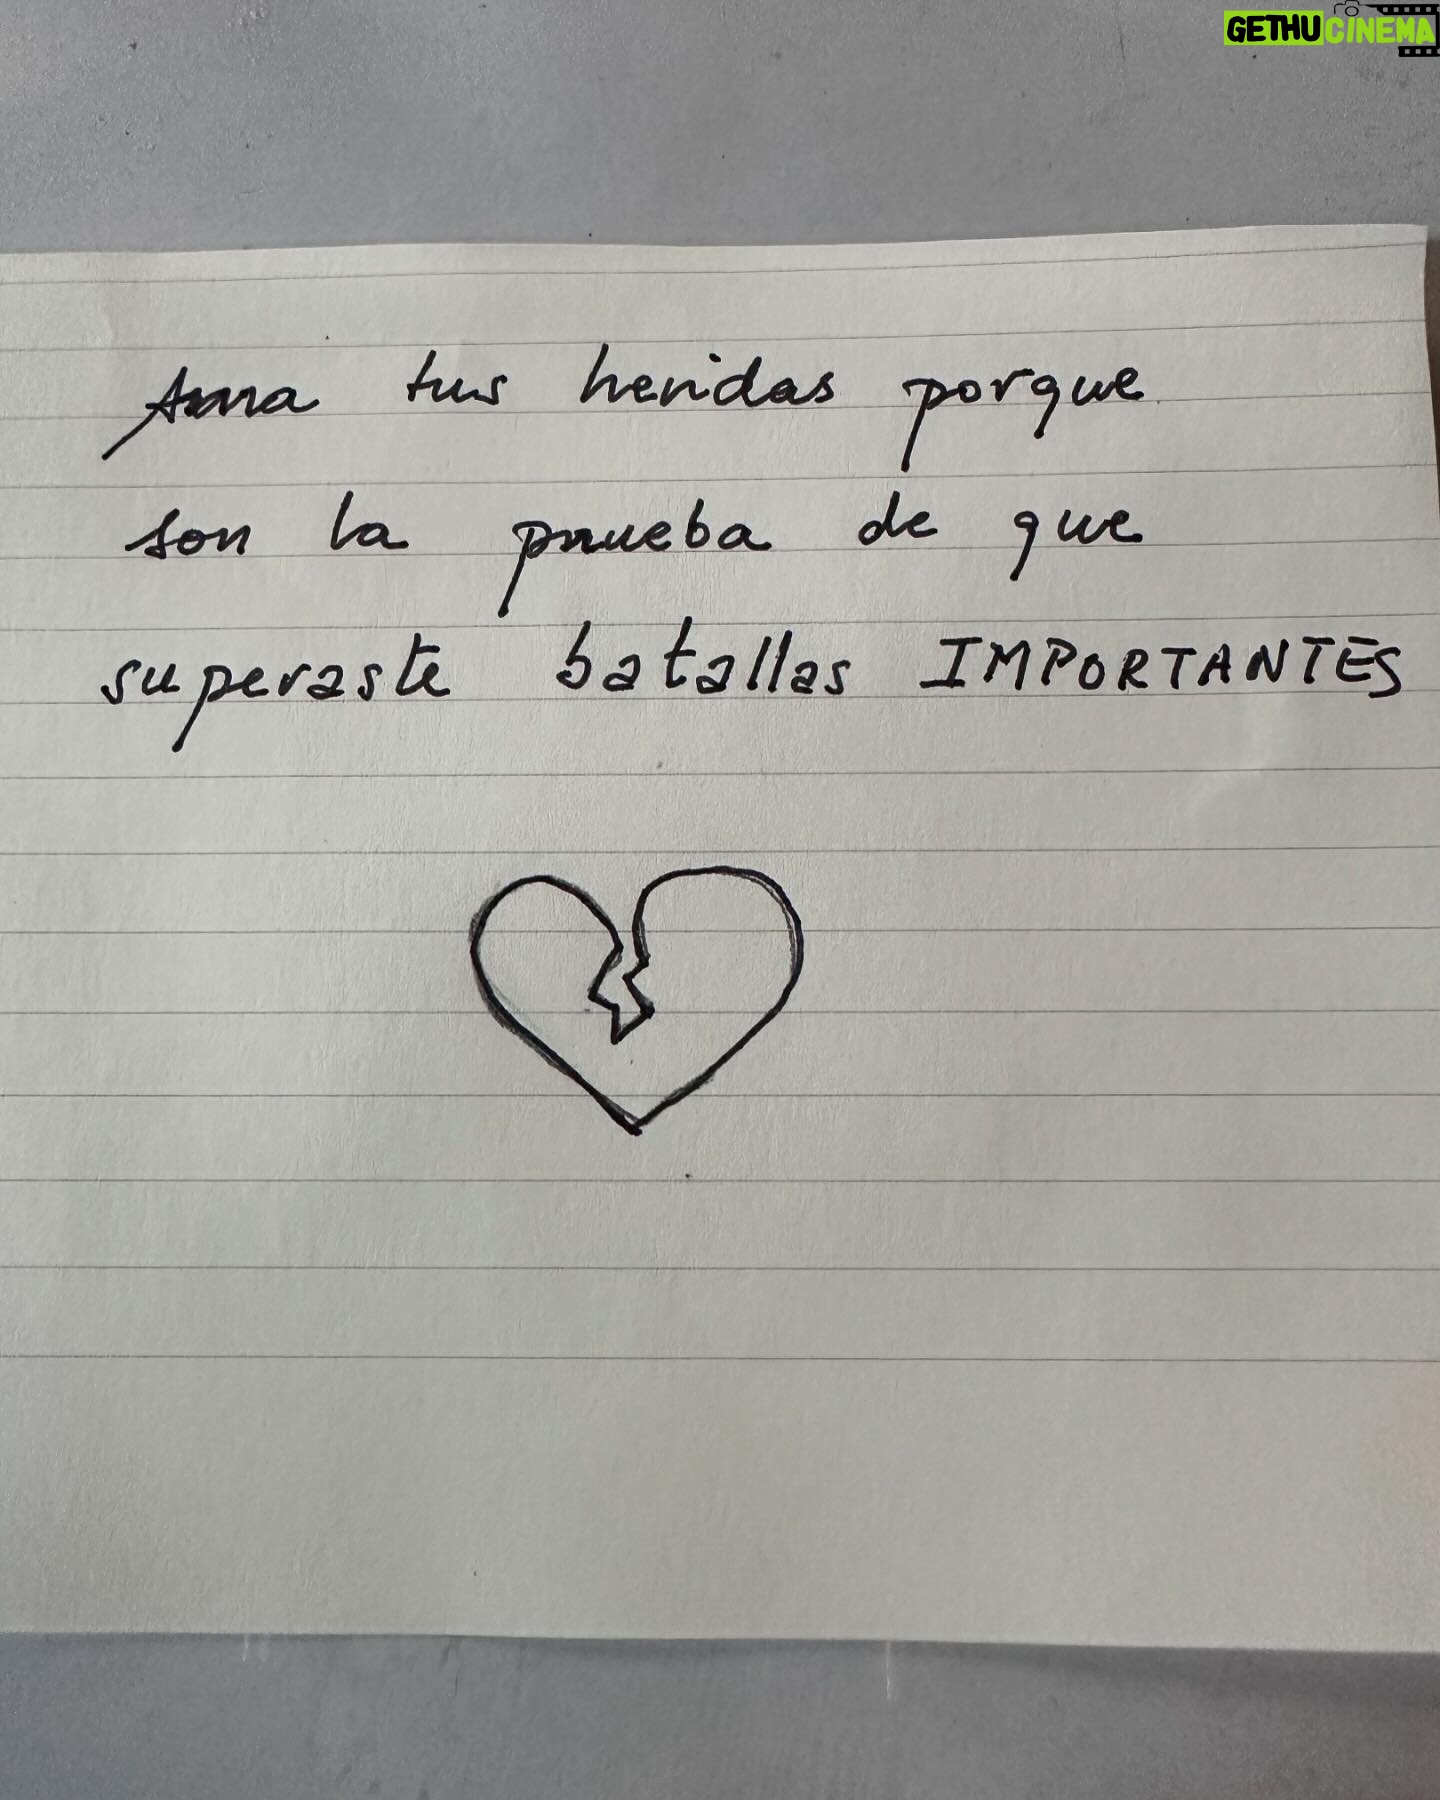 GETHUCINEMA
Ama tus heridas porque
son la prueba de que
superaste batallas IMPORTANTES